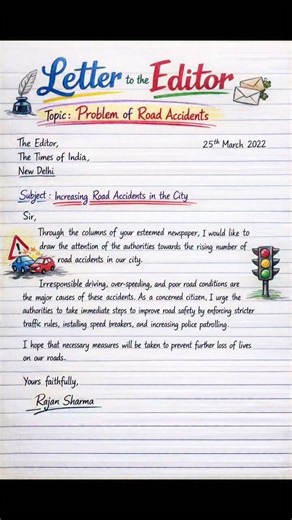 Letter to the Editor
Topic: Problem of Road Accidents
The Editor, 25th March 2022
The Times of India,
New Delhi
Subject : Increasing Road Accidents in the City
Sir,
Through the columns of your esteemed newspaper, I would like to
draw the attention of the authorities towards the rising number of
road accidents in our city.
Irresponsible driving, over-speeding, and poor road conditions are
the major causes of these accidents. As a concerned citizen, I urge the
authorities to take immediate steps to improve road safety by enforcing stricter
traffic rules, installing speed breakers, and increasing police patrolling.
I hope that necessary measures will be taken to prevent further loss of lives
on our roads.
Yours faithfully,
Rajan Sharma